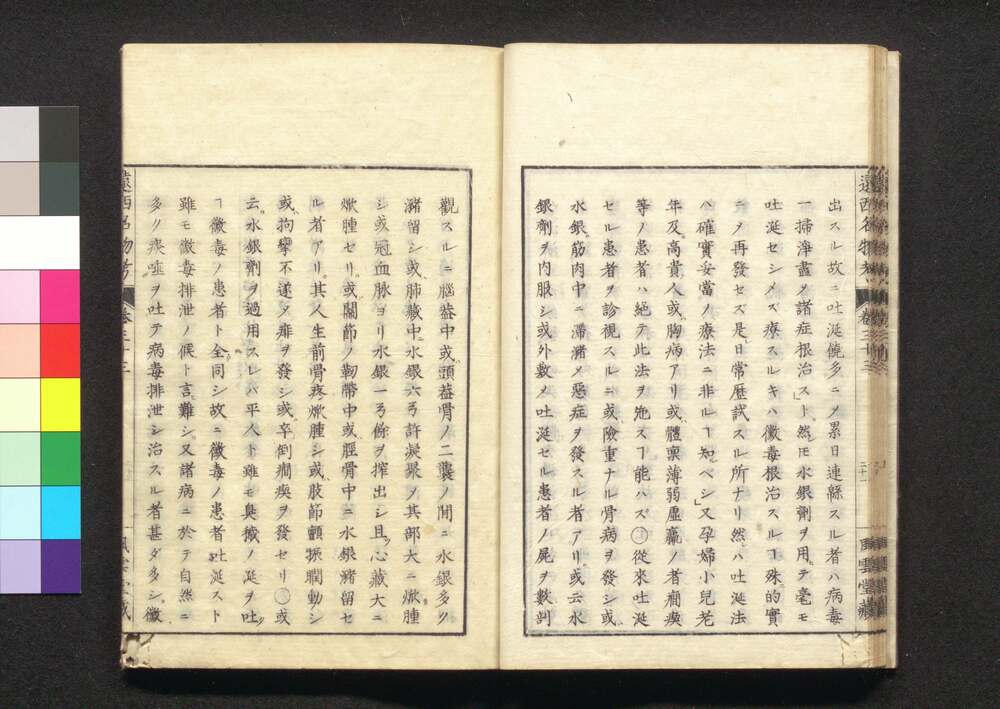 遠西名物考 卷三十三 三十一 風雲堂藏
出スル故ニ吐涎饒多ニノ累日連緜スル者ハ病毒
一掃淨盡〆諸症根治ス」ト然𪜈水銀劑ヲ用テ毫モ
吐涎セシメズ療スルキハ黴毒根治スルヿ殊的實
ニ〆再發セズ是レ日常歴試スル所ナリ然ハ吐涎法
ハ確實妥當ノ療法ニ非ルヿ知ベシ」又孕婦小兒老
年及高貴人或ハ胸病アリ或ハ體稟薄弱虛羸ノ者癇瘈
等ノ患者ハ絶テ此法ヲ施スヿ能ハズ○從來吐涎
セル患者ヲ診視スルニ或ハ險重ナル骨病ヲ發シ或ハ
水銀筋肉中ニ滯瀦〆惡症ヲ發スル者アリ或云水
銀劑ヲ内服シ或ハ外敷〆吐涎セル患者ノ屍ヲ數刲
觀スルニ腦蓋中或ハ頭蓋骨ノ二襲ノ間ニ水銀多ク
瀦留シ或ハ肺藏中ニ水銀六弓許凝聚〆其部大ニ焮腫
シ或ハ冠血脉ヨリ水銀一弓餘ヲ搾出シ且ツ心藏大ニ
焮腫セリ或ハ關節ノ靭帶中或ハ脛骨中ニ水銀瀦留セ
ル者アリ其人生前骨疼焮腫シ或ハ肢節顫振瞤動シ
或ハ拘攣不遂ノ痱ヲ發シ或ハ卒倒癇瘈ヲ發セリ○或
云水銀劑ヲ過用スレバ平人ト雖モ臭穢ノ涎ヲ吐ク
ヿ黴毒ノ患者ト全ク同シ故ニ黴毒ノ患者吐涎スト
雖モ黴毒排泄ノ候ト言ヒ難シ又諸病ニ於テ自然ニ
多ク痰唾ヲ吐テ病毒排泄シ治スル者甚ダ多シ黴
遠西名物考 卷三十三